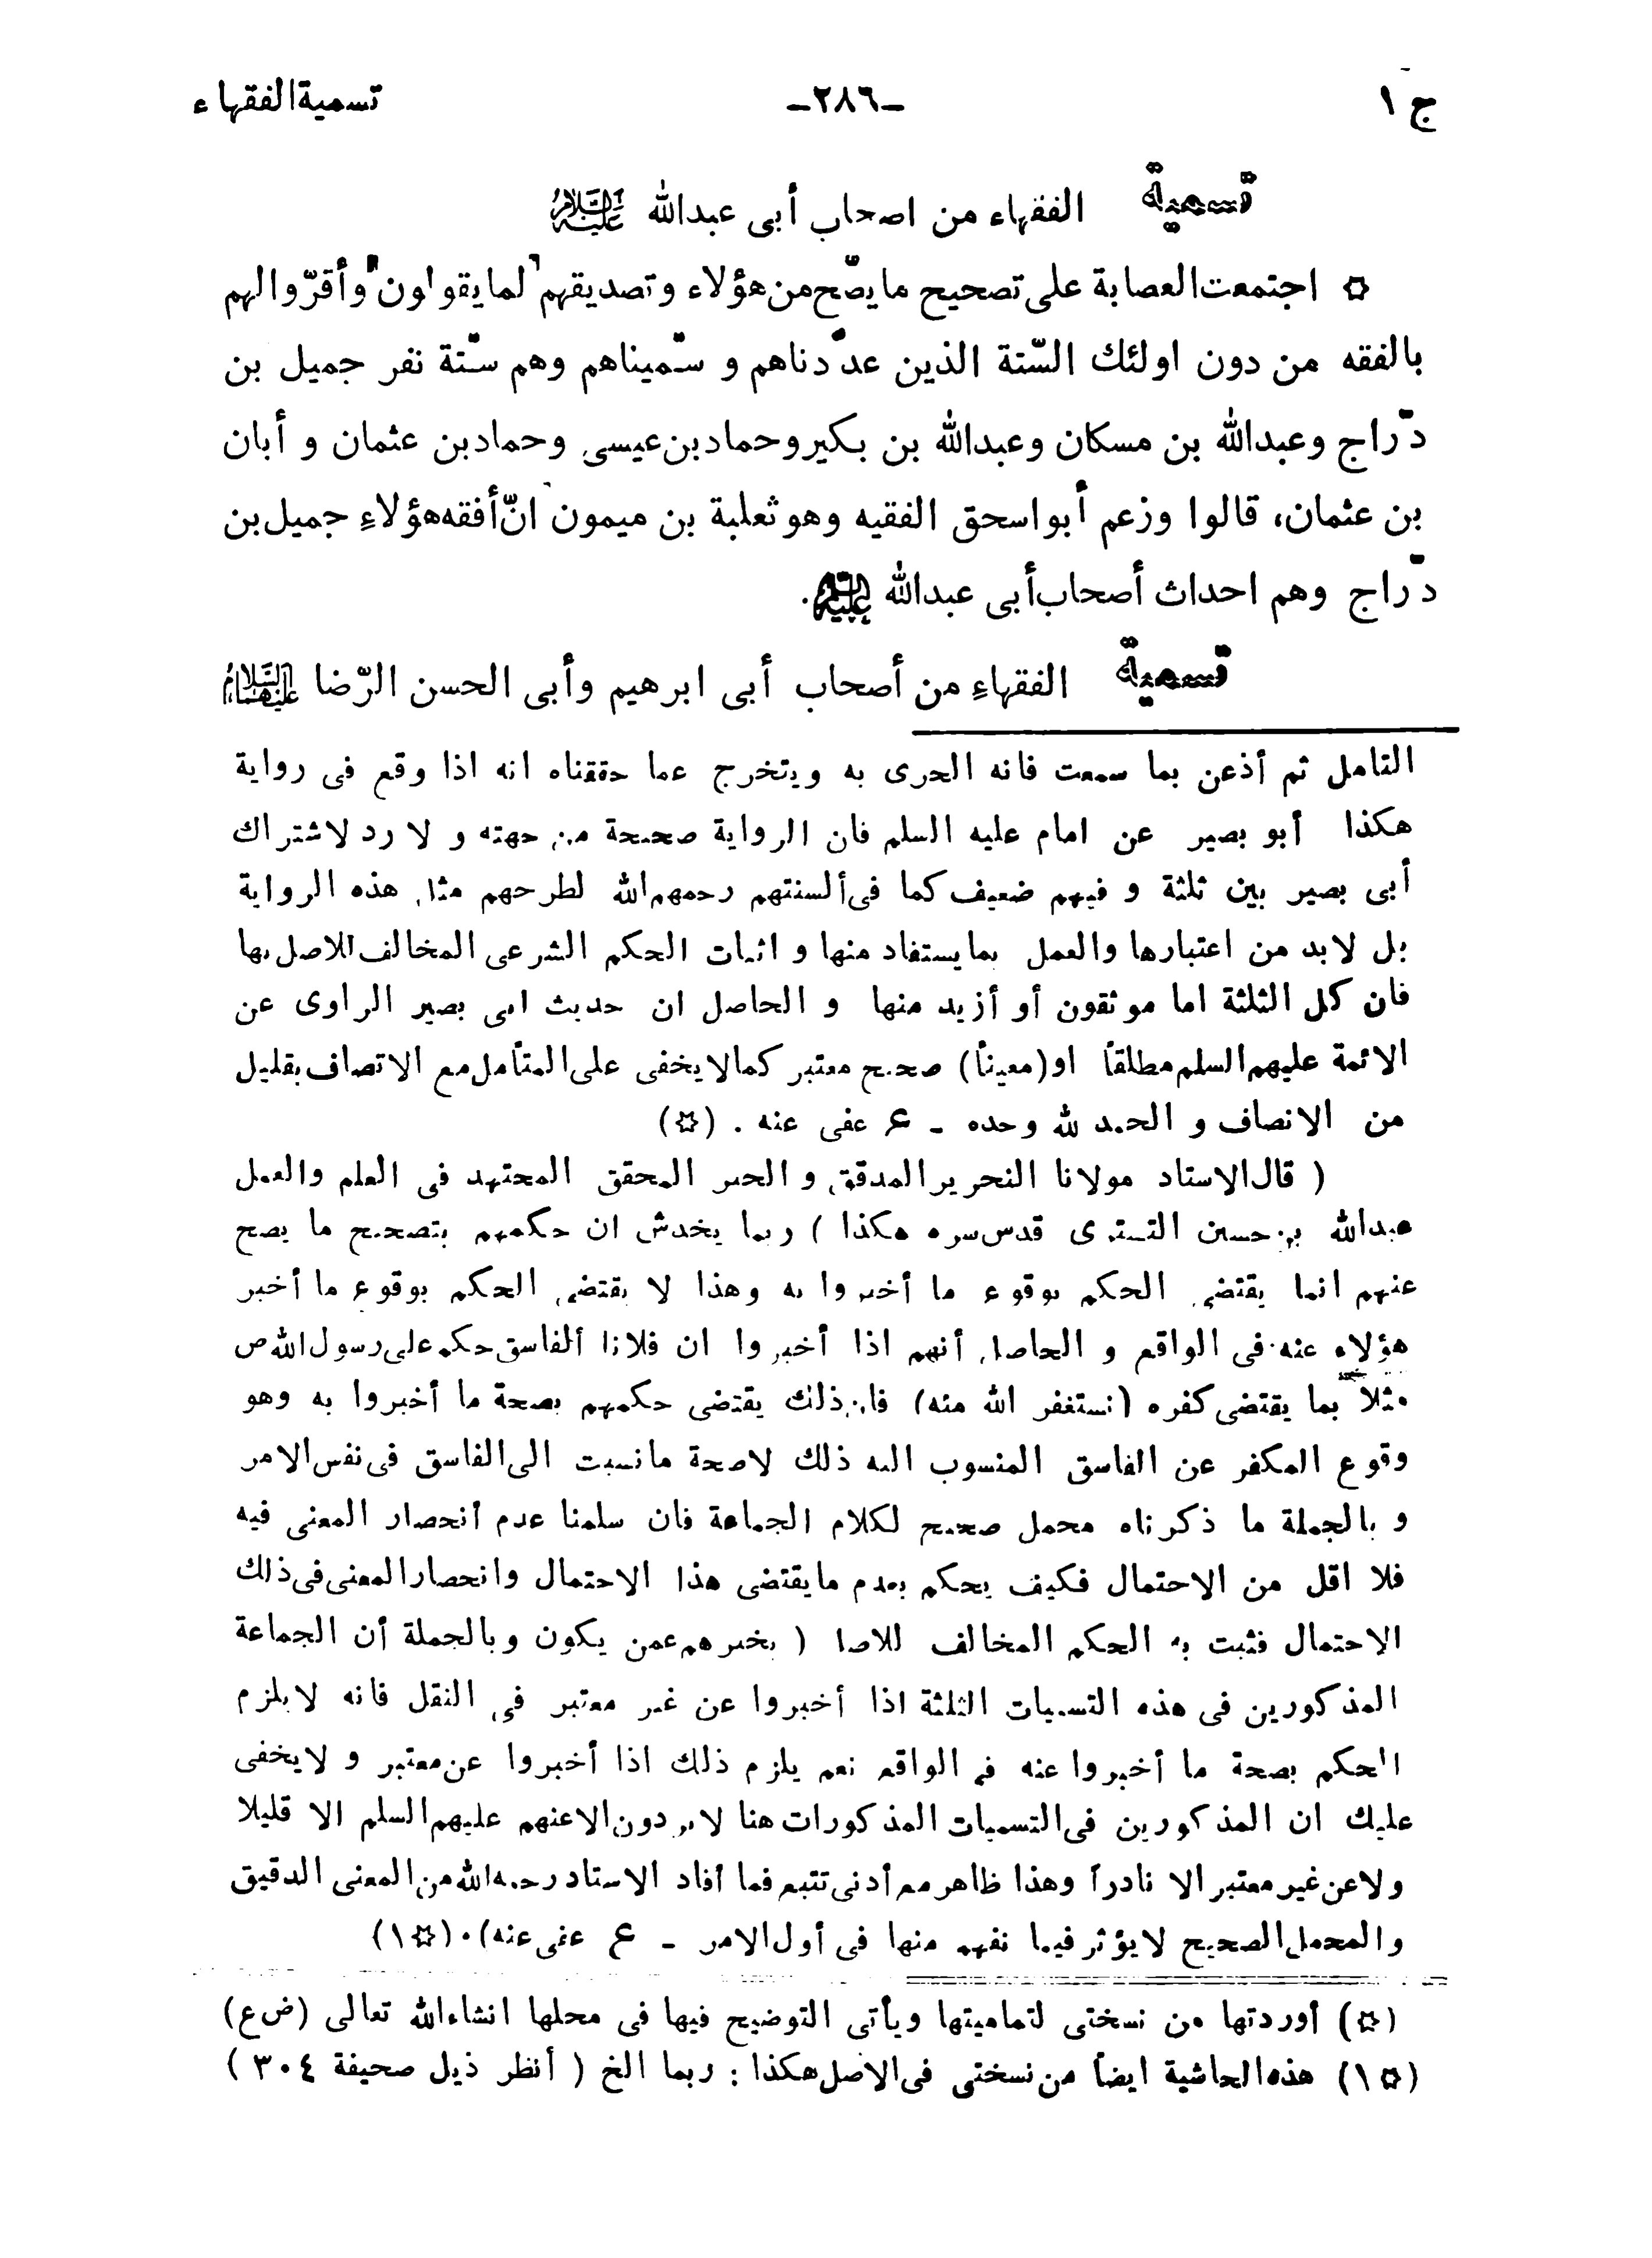 ج ١ -٢٨٦- تسمية الفقهاء
تسمية الفقهاء من اصحاب أبى عبدالله عليه السلام
✡ اجتمعت العصابة على تصحيح ما يصّح من هؤلاء وتصديقهم لما يقولون وأقرّوا لهم
بالفقه من دون اولئك السّتة الذين عدّدناهم و سّميناهم وهم سّتة نفر جميل بن
دّراج وعبدالله بن مسكان وعبدالله بن بكير وحماد بن عيسى وحماد بن عثمان و أبان
بن عثمان، قالوا وزعم أبو اسحق الفقيه وهو ثعلبة بن ميمون انّ أفقه هؤلاءِ جميل بن
دّراج وهم احداث أصحاب أبى عبدالله عليه السلام.
تسمية الفقهاءِ من أصحاب أبى ابرهيم وأبى الحسن الرّضا عليهما السلام
التامل ثم أذعن بما سمعت فانه الحرى به ويتخرج عما حققناه انه اذا وقع فى رواية
هكذا أبو بصير عن امام عليه السلم فان الرواية صحيحة من جهته و لا رد لاشتراك
أبى بصير بين ثلثة و فيهم ضعيف كما فى ألسنتهم رحمهم الله لطرحهم مثل هذه الرواية
بل لابد من اعتبارها والعمل بما يستفاد منها و اثبات الحكم الشرعى المخالف للاصل بها
فان كل الثلثة اما موثقون أو أزيد منها و الحاصل ان حديث ابى بصير الراوى عن
الائمة عليهم السلم مطلقاً او (معيناً) صحيح معتبر كما لا يخفى على المتأمل مع الاتصاف بقليل
من الانصاف و الحمد لله وحده ـ ع عفى عنه . (✡)
( قال الاستاد مولانا النحرير المدقق و الحبر المحقق المجتهد فى العلم والعمل
عبدالله بن حسين التسترى قدس سره هكذا ) ربما يخدش ان حكمهم بتصحيح ما يصح
عنهم انما يقتضى الحكم بوقوع ما أخبروا به وهذا لا يقتضى الحكم بوقوع ما أخبر
هؤلاء عنه فى الواقع و الحاصل أنهم اذا أخبروا ان فلانا الفاسق حكم على رسول الله ص
مثلاً بما يقتضى كفره (نستغفر الله منه) فان ذلك يقتضى حكمهم بصحة ما أخبروا به وهو
وقوع المكفر عن الفاسق المنسوب اليه ذلك لاصحة ما نسبت الى الفاسق فى نفس الامر
و بالجملة ما ذكرناه محمل صحيح لكلام الجماعة فان سلمنا عدم أنحصار المعنى فيه
فلا اقل من الاحتمال فكيف يحكم بعدم ما يقتضى هذا الاحتمال وانحصار المعنى فى ذلك
الاحتمال فثبت به الحكم المخالف للاصل ( بخبرهم عمن يكون وبالجملة أن الجماعة
المذكورين فى هذه التسميات الثلثة اذا أخبروا عن غير معتبر فى النقل فانه لا يلزم
الحكم بصحة ما أخبروا عنه فى الواقع نعم يلزم ذلك اذا أخبروا عن معتبر و لا يخفى
عليك ان المذكورين فى التسميات المذكورات هنا لا يردون الا عنهم عليهم السلم الا قليلا
ولا عن غير معتبر الا نادراً وهذا ظاهر مع أدنى تتبع فما أفاد الاستاد رحمه الله من المعنى الدقيق
والمحمل الصحيح لا يؤثر فيما نفهم منها فى أول الامر ـ ع عفى عنه). (✡١)
(✡) أوردتها من نسختى لتماميتها ويأتى التوضيح فيها فى محلها انشاءالله تعالى (ض ع)
(✡١) هذه الحاشية ايضاً من نسختى فى الاصل هكذا : ربما الخ ( أنظر ذيل صحيفة ٣٠٤ )